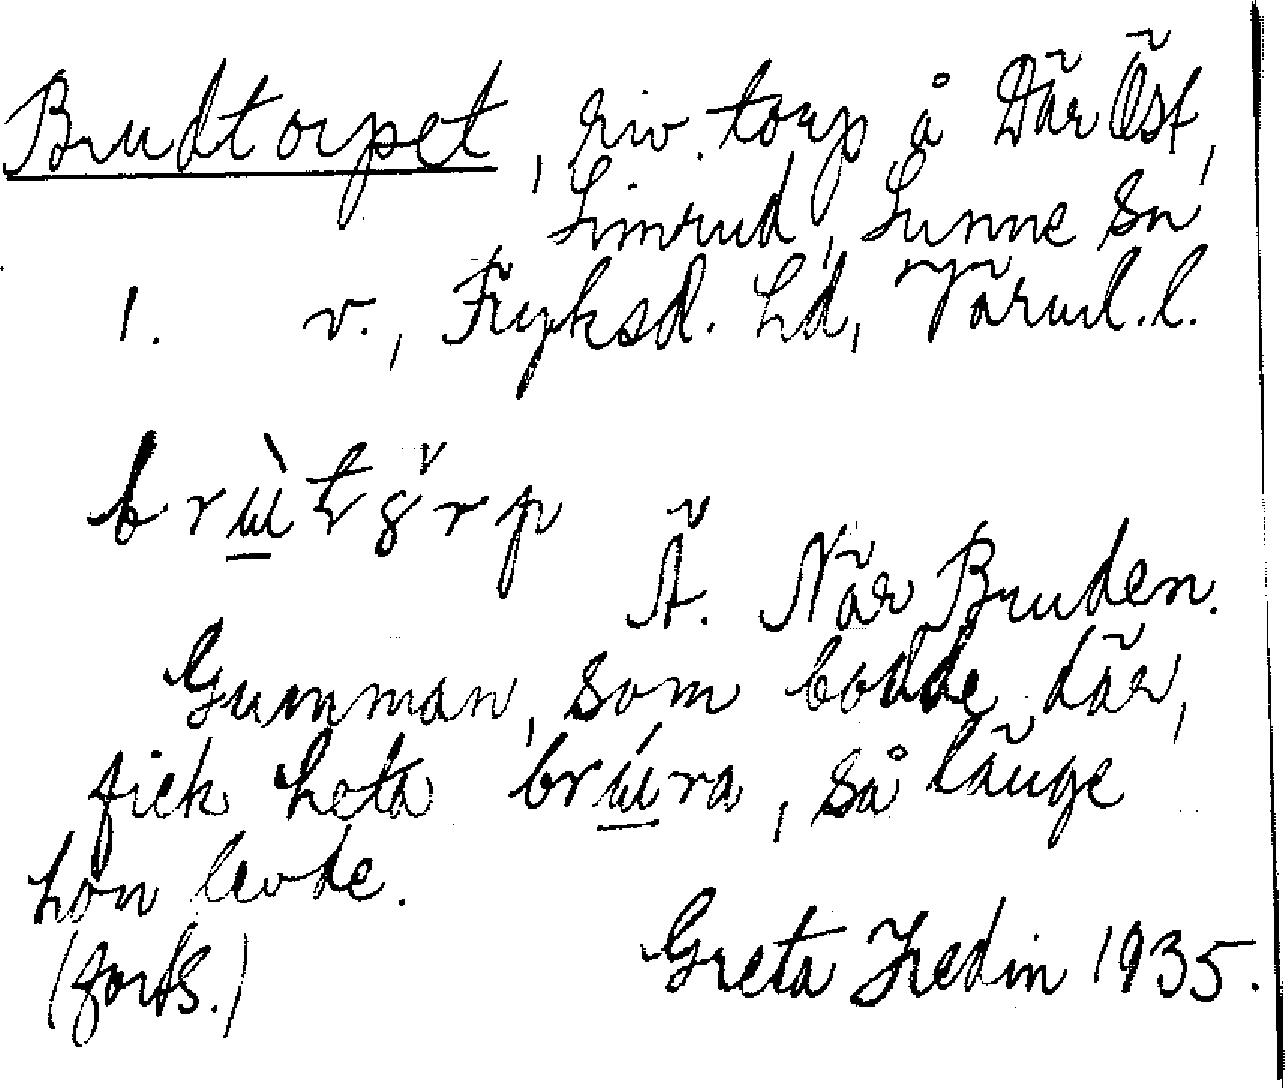 Brudtorpet, riv. torp å Där Öst,
Simrud, Sunne sn
1. v., Fryksd. hd, Värml. l.
brɯ̀tɞrp
Ä. När Bruden.
Gumman, som bodde där,
fick heta brɯ́ra, så länge
hon levde.
(forts.) Greta Hedin 1935.